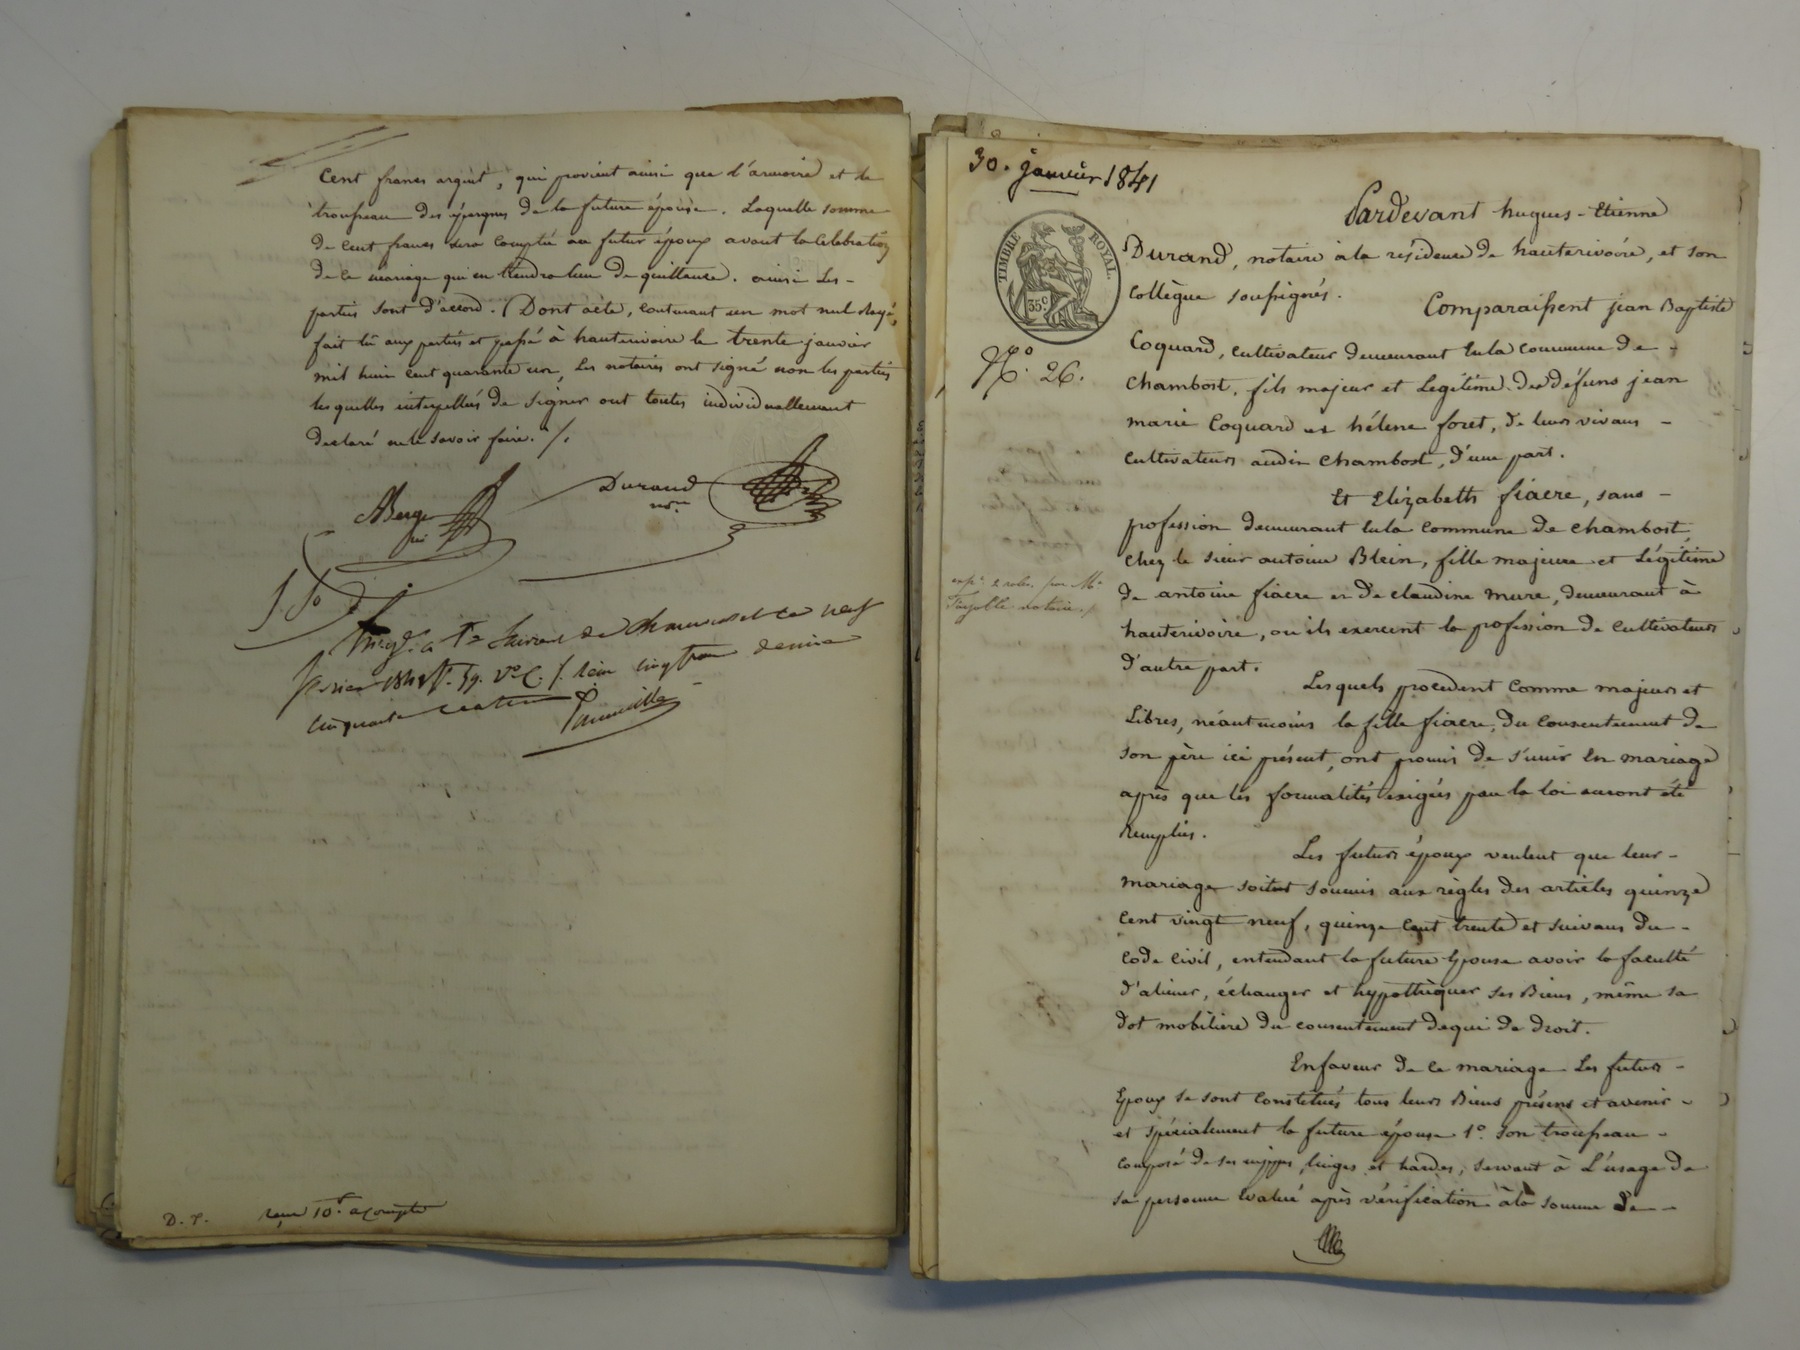 Cent francs argent, qui provient ainsi que l'armoire et le
trousseau des épargnes de la future épouse. Laquelle somme
de cent francs sera comptée au futur époux avant la celebration
de ce mariage qui en tiendra lieu de quittance. ainsi les -
parties sont d'accord. Dont acte, contenant un mot nul rayé,
fait lû aux parties et passé à hauterivoire le trente janvier
mil huit cent quarante un, les notaires ont signé non les parties
lesquelles interpellées de signer ont toutes individuellement
declaré ne le savoir faire. /.
Durand
nore
Enregd. à St Laurent de chamousset le neuf
fevrier 1841 fo. 59. Vo C. 1. reçu cinq francs decime
cinquante centimes
D. P. reçu 10f. acompte
30. janvier 1841
Pardevant hugues-Etienne
TIMBRE ROYAL
35c
Durand, notaire à la résidence de hauterivoire, et son
collègue soussignés. Comparaissent jean Baptiste
No. 26.
Coquard, cultivateur demeurant en la commune de -
chambost, fils majeur et légitime des défuns jean
marie Coquard et hélene foret, de leurs vivans -
cultivateurs audit chambost, d'une part.
Et Elizabeth fiacre, sans -
profession demeurant en la commune de chambost,
chez le sieur antoine Blein, fille majeure et légitime
de antoine fiacre et de claudine mure, demeurant à
hauterivoire, ou ils exercent la profession de cultivateurs
d'autre part.
notaire.
Lesquels procedent comme majeurs et
Libres, néantmoins la fille fiacre, du consentement de
son père ici présent, ont promis de s'unir en mariage
après que les formalités exigées par la loi auront été
remplies.
Les futurs époux veulent que leur -
mariage soit soumis aux règles des articles quinze
cent vingt neuf, quinze cent trente et suivans du -
code civil, entendant la future épouse avoir la faculté
d'aliener, échanger et hypothèquer ses Biens, même sa
dot mobilière du consentement de qui de droit.
En faveur de ce mariage les futurs -
époux se sont constitués tous leurs Biens présens et avenir -
et spécialement la future épouse 1o. son trousseau -
composé de ses nippes, linges et hardes, servant à l'usage de
sa personne évalué après vérification à la somme de -